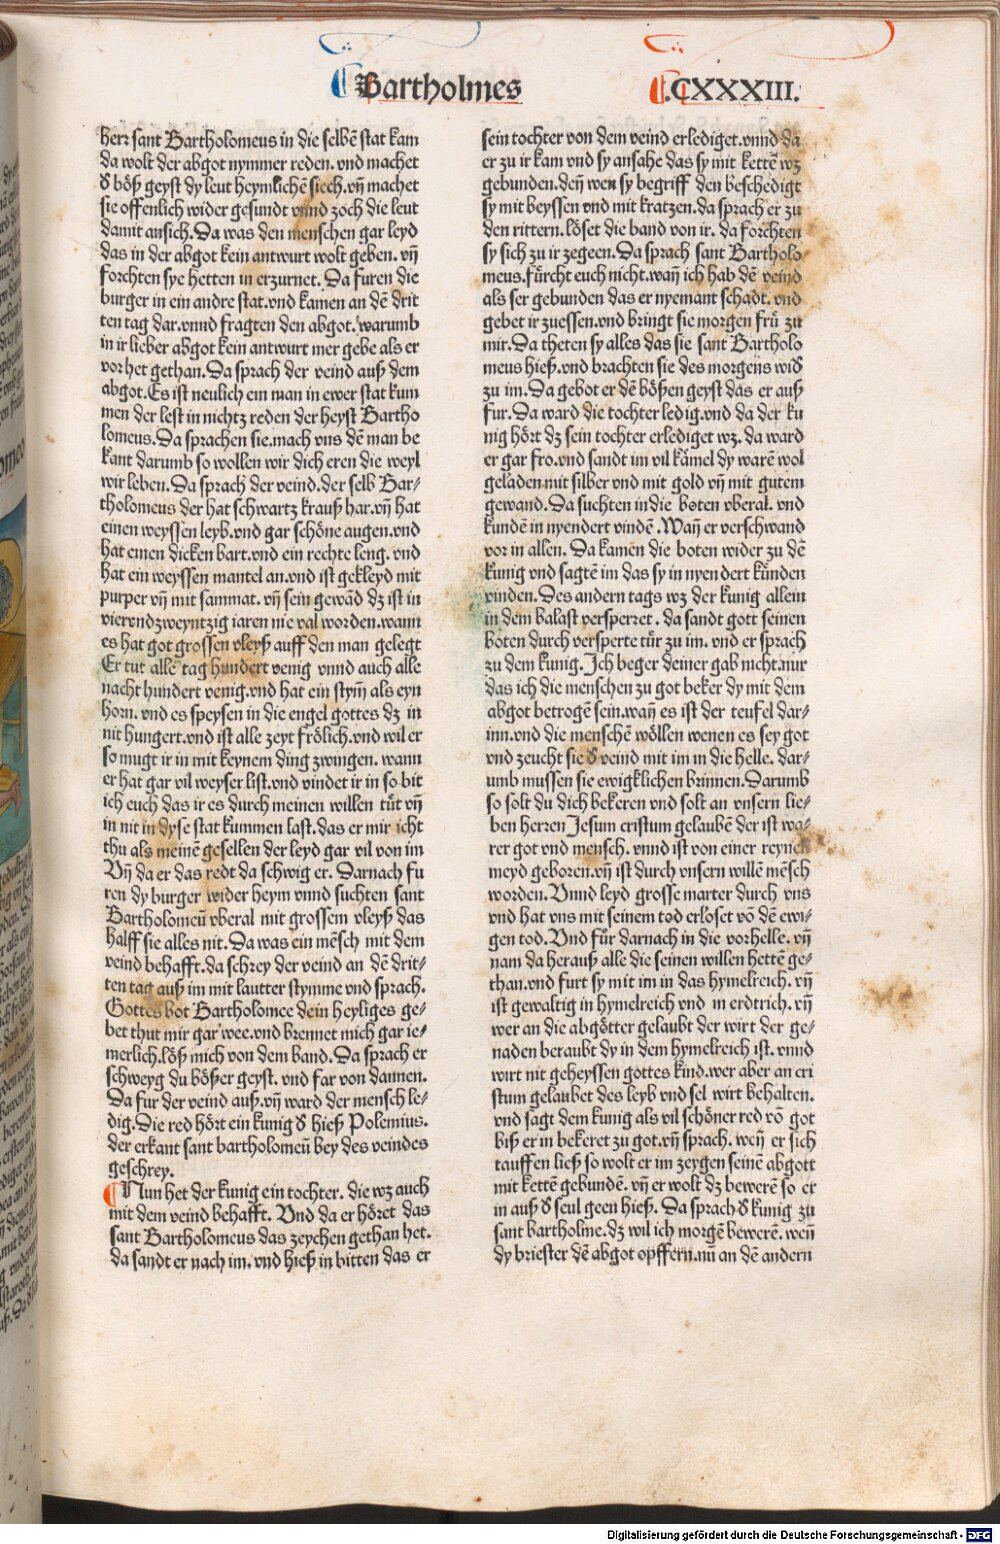 Bartholmes
.CXXXIII.
herr sant Bartholomeus in die selbē stat kam
da wolt der abgot nymmer reden. vnd machet
d̕ böß geyst dy leut heymlichē siech. vn̄ machet
sie offenlich wider gesundt vnnd zoch die leut
damit an sich. Da was den menschen gar leyd
das in der abgot kein antwurt wolt geben. vn̄
forchten sye hetten in erzurnet. Da furen die
burger in ein andre stat. vnd kamen an dē drit
ten tag dar. vnnd fragten den abgot. warumb
in ir lieber abgot kein antwurt mer gebe als er
vor het gethan. Da sprach der veind auß dem
abgot. Es ist neulich ein man in ewer stat kum
men der lest in nichtz reden der heyst Bartho
lomeus. Da sprachen sie. mach vns dē man be
kant darumb so wollen wir dich eren die weyl
wir leben. Da sprach der veind. der selb Bar-
tholomeus der hat schwartz krauß har. vn̄ hat
einen weyssen leyb. vnd gar schöne augen. vnd
hat einen dicken bart. vnd ein rechte leng. vnd
hat ein weyssen mantel an. vnd ist gekleyd mit
purper vn̄ mit sammat. vn̄ sein gewād dz ist in
viervndzweyntzig iaren nie val worden. wann
es hat got grossen vleyß auff den man gelegt
Er tut alle tag hundert venig vnnd auch alle
nacht hundert venig. vnd hat ein stym̄ als eyn
horn. vnd es speysen in die engel gottes dz in
nit hungert. vnd ist alle zeyt frölich. vnd wil er
so mugt ir in mit keynem ding zwingen. wann
er hat gar vil weyser list. vnd vindet ir in so bit
ich euch das ir es durch meinen willen tüt vn̄
in nit in dyse stat kummen last. das er mir icht
thu als meinē gesellen der leyd gar vil von im
Vn̄ da er das redt da schwig er. Darnach fu
ren dy burger wider heym vnnd suchten sant
Bartholomeū vberal mit grossem vleyß das
halff sie alles nit. Da was ein mēsch mit dem
veind behafft. da schrey der veind an dē drit-
ten tag auß im mit lautter stymme vnd sprach.
Gottes bot Bartholomee dein heyliges ge-
bet thut mir gar wee. vnd brennet mich gar ie-
merlich. löß mich von dem band. Da sprach er
schweyg du bößer geyst. vnd far von dannen.
Da fur der veind auß. vn̄ ward der mensch le-
dig. Die red hört ein kunig d̕ hieß Polemius.
der erkant sant bartholomeū bey des veindes
geschrey.
Nun het der kunig ein tochter. die wz auch
mit dem veind behafft. Vnd da er höret das
sant Bartholomeus das zeychen gethan het.
da sandt er nach im. vnd hieß in bitten das er
sein tochter von dem veind erlediget. vnnd da
er zu ir kam vnd sy ansahe das sy mit kettē wz
gebunden. den̄ wen sy begriff den beschedigt
sy mit beyssen vnd mit kratzen. da sprach er zu
den rittern. löset die band von ir. da forchten
sy sich zu ir zegeen. Da sprach sant Bartholo-
meus. fürcht euch nicht. wan̄ ich hab dē veind
als ser gebunden das er nyemant schadt. vnd
gebet ir zuessen. vnd bringt sie morgen frü zu
mir. Da theten sy alles das sie sant Bartholo
meus hieß. vnd brachten sie des morgens wid̕
zu im. Da gebot er dē bößen geyst das er auß
fur. Da ward die tochter ledig. vnd da der ku
nig hört dz sein tochter erlediget wz. da ward
er gar fro. vnd sandt im vil kämel dy warē wol
geladen mit silber vnd mit gold vn̄ mit gutem
gewand. Da suchten in die boten vberal. vnd
kundē in nyendert vindē. Wan̄ er verschwand
vor in allen. Da kamen die boten wider zu dē
kunig vnd sagtē im das sy in nyendert künden
vinden. Des andern tags wz der kunig allein
in dem balast versperret. da sandt gott seinen
boten durch versperte tür zu im. vnd er sprach
zu dem kunig. Ich beger deiner gab nicht. nur
das ich die menschen zu got beker dy mit dem
abgot betrogē sein. wan̄ es ist der teufel dar-
inn. vnd die menschē wöllen wenen es sey got
vnd zeucht sie d̕ veind mit im in die helle. dar-
umb mussen sie ewigklichen brinnen. Darumb
so solt du dich bekeren vnd solt an vnsern lie-
ben herren Jesum cristum gelaubē der ist wa-
rer got vnd mensch. vnnd ist von einer reynen
meyd geboren. vn̄ ist durch vnsern willē mēsch
worden. Vnnd leyd grosse marter durch vns
vnd hat vns mit seinem tod erloset vō dē ewi-
gen tod. Vnd für darnach in die vorhelle. vn̄
nam da herauß alle die seinen willen hettē ge-
than. vnd furt sy mit im in das hymelreich. vn̄
ist gewaltig in hymelreich vnd in erdtrich. vn̄
wer an die abgötter gelaubt der wirt der ge-
naden beraubt dy in dem hymelreich ist. vnnd
wirt nit geheyssen gottes kind. wer aber an cri
stum gelaubet des leyb vnd sel wirt behalten.
vnd sagt dem kunig als vil schöner red vō got
biß er in bekeret zu got. vn̄ sprach. wen̄ er sich
tauffen ließ so wolt er im zeygen seinē abgott
mit kettē gebundē. vn̄ er wolt dz bewerē so er
in auß d̕ seul geen hieß. Da sprach d̕ kunig zu
sant bartholme. dz wil ich morgē bewerē. wen̄
dy briester dē abgot opffern. nū an dē andern
Digitalisierung gefördert durch die Deutsche Forschungsgemeinschaft - DFG